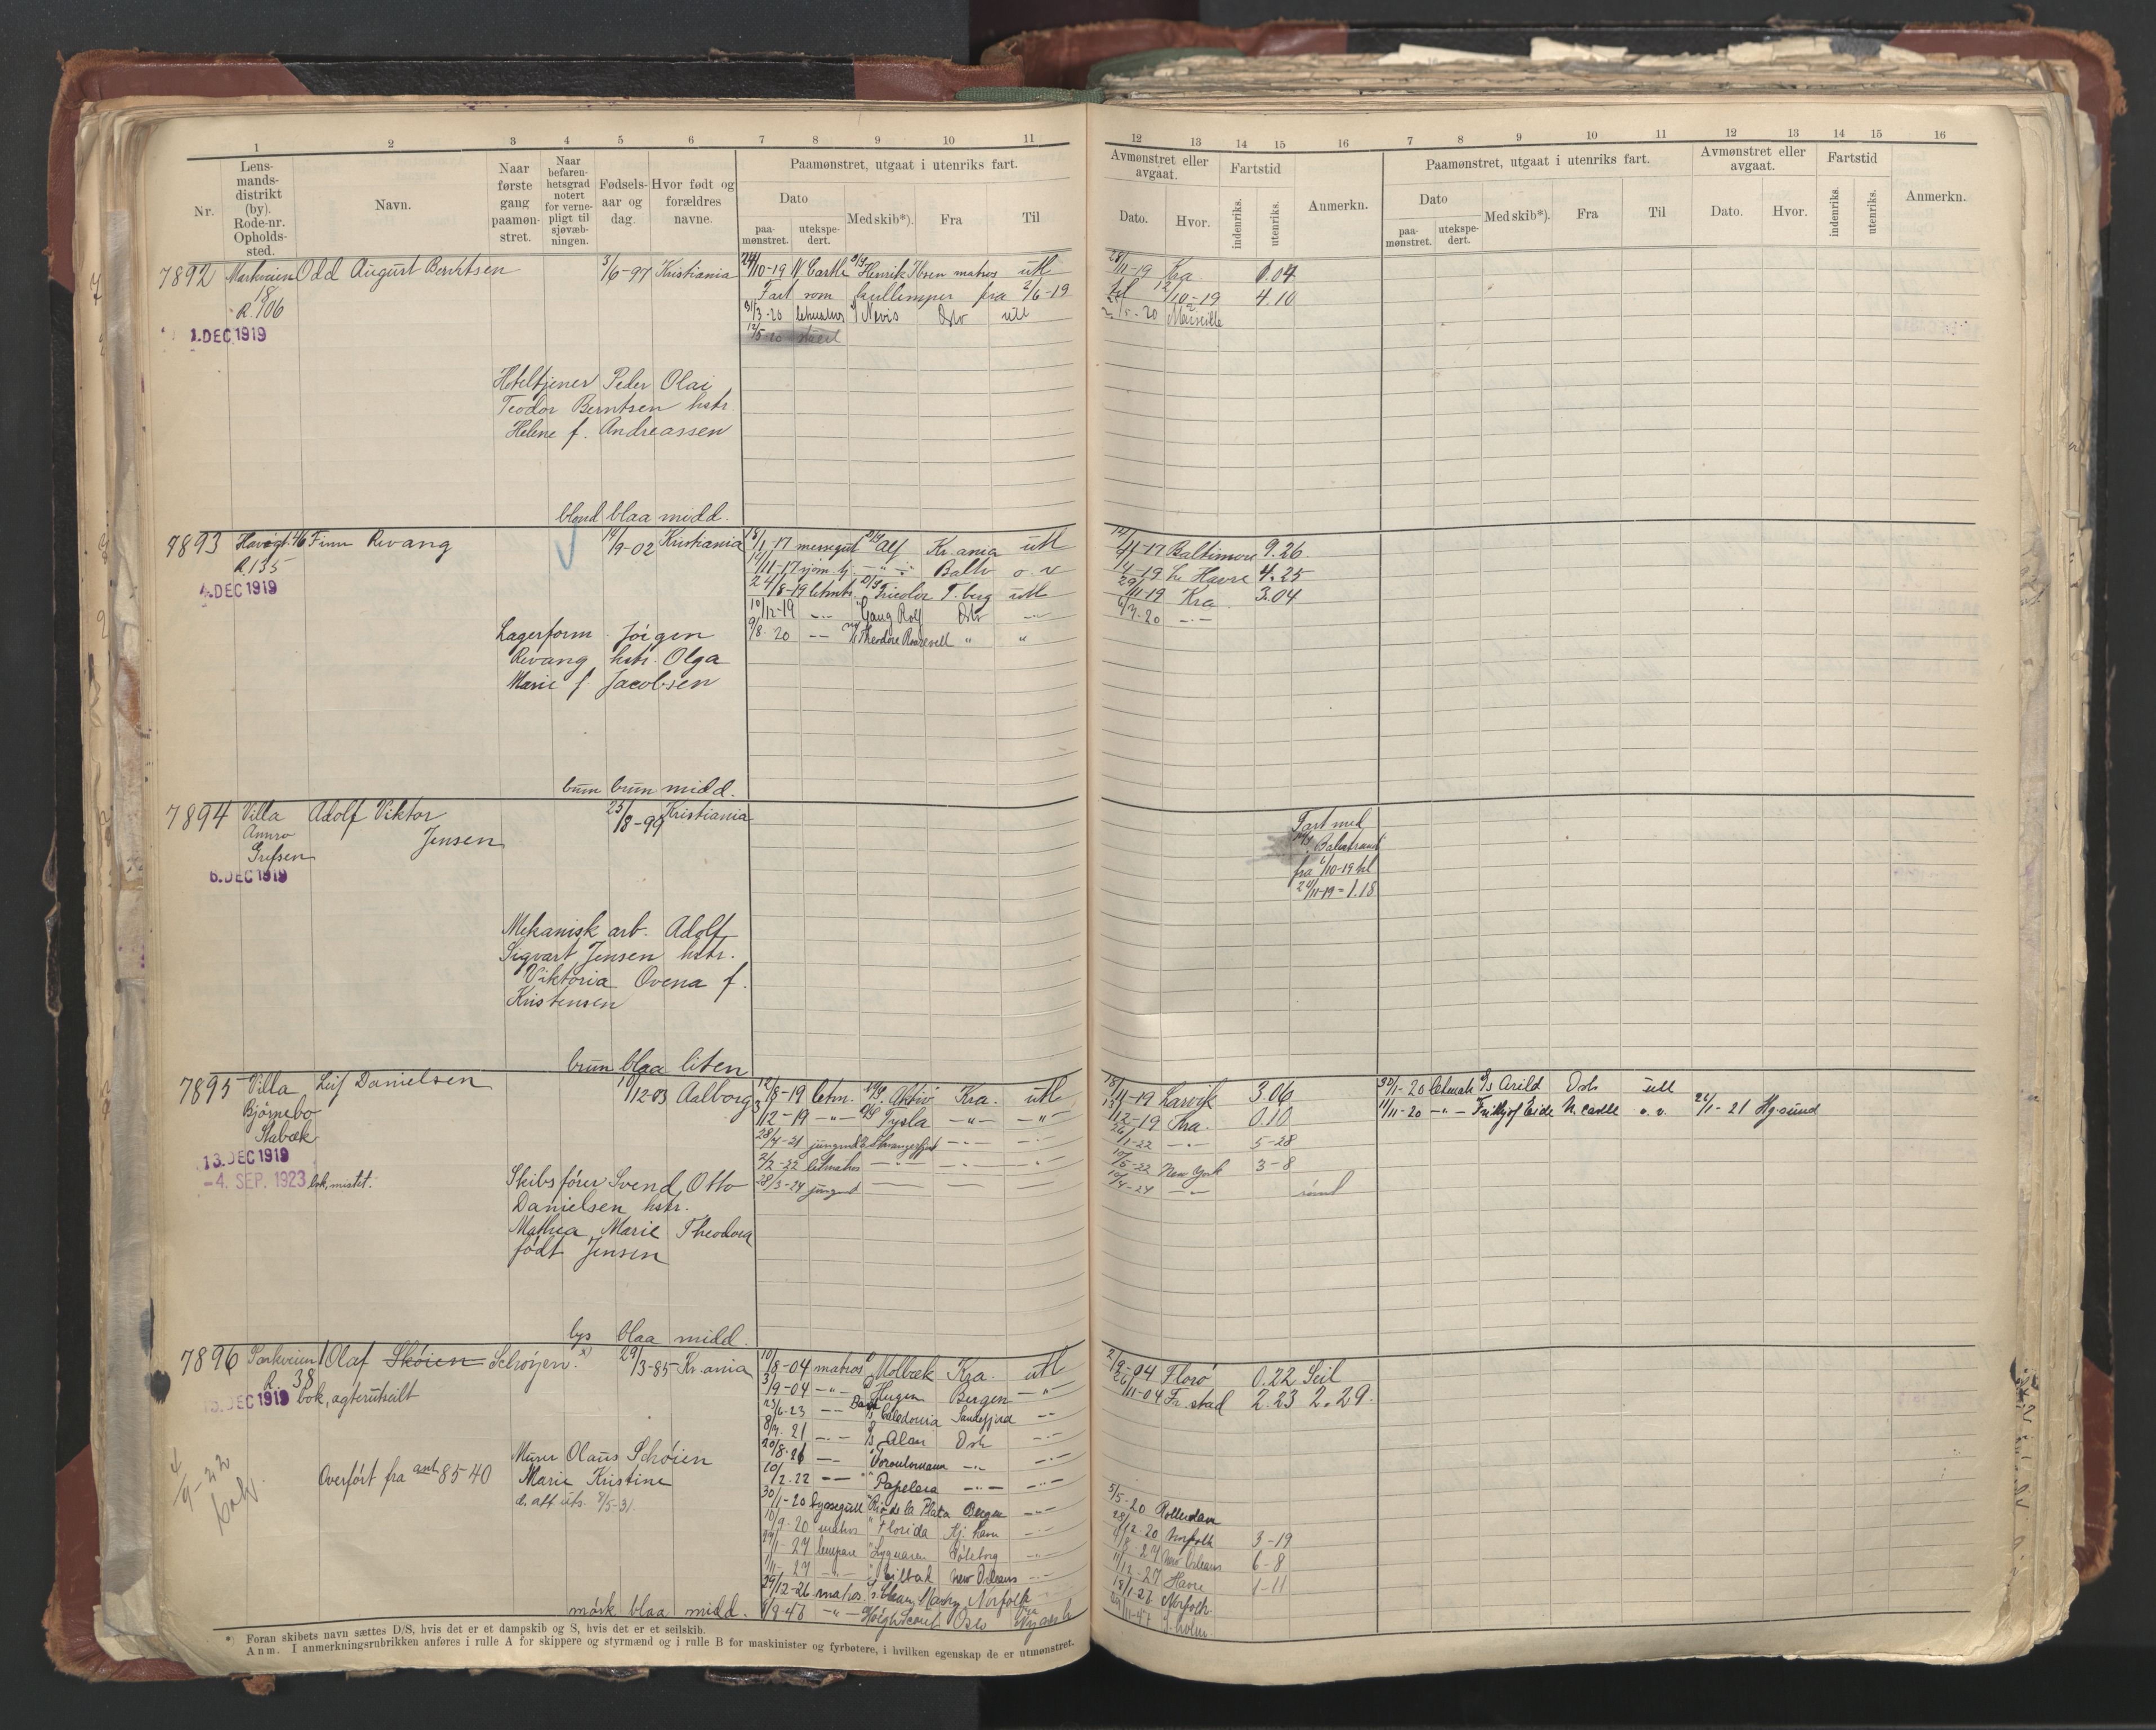 1 2 3 4 5 6 7 8 9 10 11
Nr.
Lens-
mands-
distrikt
(by).
Rode-nr.
Opholds-
sted.
Navn.
Naar
første
gang
paamøn-
stret.
Naar
befaren-
hetsgrad
notert
for verne-
pligt til
sjøvæb-
ningen.
Fødsels-
aar og
dag.
Hvor født og
forældres
navne.
Paamønstret, utgaat i utenriks fart.
Dato
paa-
mønstret.
utekspe-
dert.
Med skib*).
Fra
Til
7892 Markveien Odd August Berntsen 3/6-97 Kristiania 24/10-19 N Castle D/S Henrik Ibsen matros utl
18
R. 106
Fart som kullemper fra 2/6-19
31/3-20 letmatros Nevis Oslo utl
12/5-20
1. DEC 1919
Hoteltjener Peder Olai
Teodor Berntsen hstr.
Helene f. Andreassen
blond blaa midd.
7893 Havegt. 46 Finn Rivang 14/9-02 Kristiania 18/1-17 messegut D/S Alf Kr.ania utl
R 135
14/11-17 Balti o. v
24/8-19 letmtr. D/S Tricolor T.berg utl
4. DEC 1919
10/12-19 -"- Gang Rolf Oslo -"-
9/8-20 -"- Theodore Roosevelt " "
Lagerform. Jörgen
Rivang hstr. Olga
Marie f. Jacobsen
brun brun midd.
7894 Villa Adolf Viktor 23/8-99 Kristiania
Annro Jensen
Grefsen
6. DEC 1919
Mekanisk arb. Adolf
Sigvart Jensen hstr.
Viktoria Ovena f.
Kristensen
brun blaa liten
7895 Villa Leif Danielsen 10/12-03 Aalborg 12/8-19 letm. M/S. Aktiv Kra. utl
Björnebo
Stabæk
3/12-19 -"- D/S Tysla -"- -"-
28/4-21 jungmd Stavangerfjord -"- -"-
13. DEC 1919
2/2-22 letmatros -"- -"- -"-
-4. SEP. 1923 bok, mistet.
28/3-24 jungmd
Skibsförer Svend Otto
Danielsen hstr.
Mathea Marie Theodora
födt Jensen
lys blaa midd.
7896 Parkveien 1 Olaf Skóien Schrøjen. x) 29/3-85 Kr.ania 10/8-04 matros Molbæk Kra. utl
R. 38
13. DEC 1919 bok, agterutseilt
3/9-04 -"- Heigen Bergen -"-
23/6-23 -"- Bark Caledonia Sandefjord -"-
8/9-21 -"- Alan Oslo -"-
20/8-26 -"- -"- -"-
10/2-22 -"- Papelera -"- -"-
30/1-20 byssegutt Rio de la Plata Bergen -"-
10/9-20 matros Florida Kj.havn -"-
lempere Göteborg -"-
-27 -"- New Orleans -"-
29/12-26 matros Norfolk
9/9 47 -"- Höigh Scout Oslo
Murer Olaus Schóien
Marie Kristine
d. att uts. 8/5-31.
Overfört fra ant 8540
4/9-22
bok
mörk blaa midd.
*) Foran skibets navn sættes D/S, hvis det er et dampskib og S, hvis det er et seilskib.
Anm. I anmerkningsrubrikken anføres i rulle A for skippere og styrmænd og i rulle B for maskinister og fyrbøtere, i hvilken egenskap de er utmønstret.
12 13 14 15 16 7 8 9 10 11 12 13 14 15 16
Avmønstret eller
avgaat.
Dato.
Hvor.
Fartstid
indenriks.
utenriks.
Anmerkn.
Paamønstret, utgaat i utenriks fart.
Dato
paa-
mønstret.
utekspe-
dert.
Med skib*).
Fra
Til
Avmønstret eller
avgaat.
Dato.
Hvor.
Fartstid
indenriks.
utenriks.
Anmerkn.
28/11-19 Kra 1.04
til 12/10-19 4.10
Marseille
14/11-17 Baltimore 9.26
1/4-19 Le Havre 4.25
29/11-19 Kra 3.04
6/7-20 -"-
Fart med
D/S Balestrand
fra 6/10-19 til
24/11-19 = 1.18
18/11-19 Larvik 3.06 30/1-20 letmatr D/S Arild Oslo utl
13/12-19 Kra. 0.10 11/11-20 -"- Fridtjof Eide N.castle o. v. 22/1-21 Hgsund
26/1-22 -"- 5-28
10/5-22 New York 3-8
10/4-24 -"- rømt
2/9-04 Florö 0.22 Seil
26/11-04 Fr.stad 2.23 2.29.
5/5-20 Rotterdam
28/12 20 Norfolk 3-19
8-27 New Orleans 6-8
11/12-27 Havre 1-11
18/1-27 Norfolk